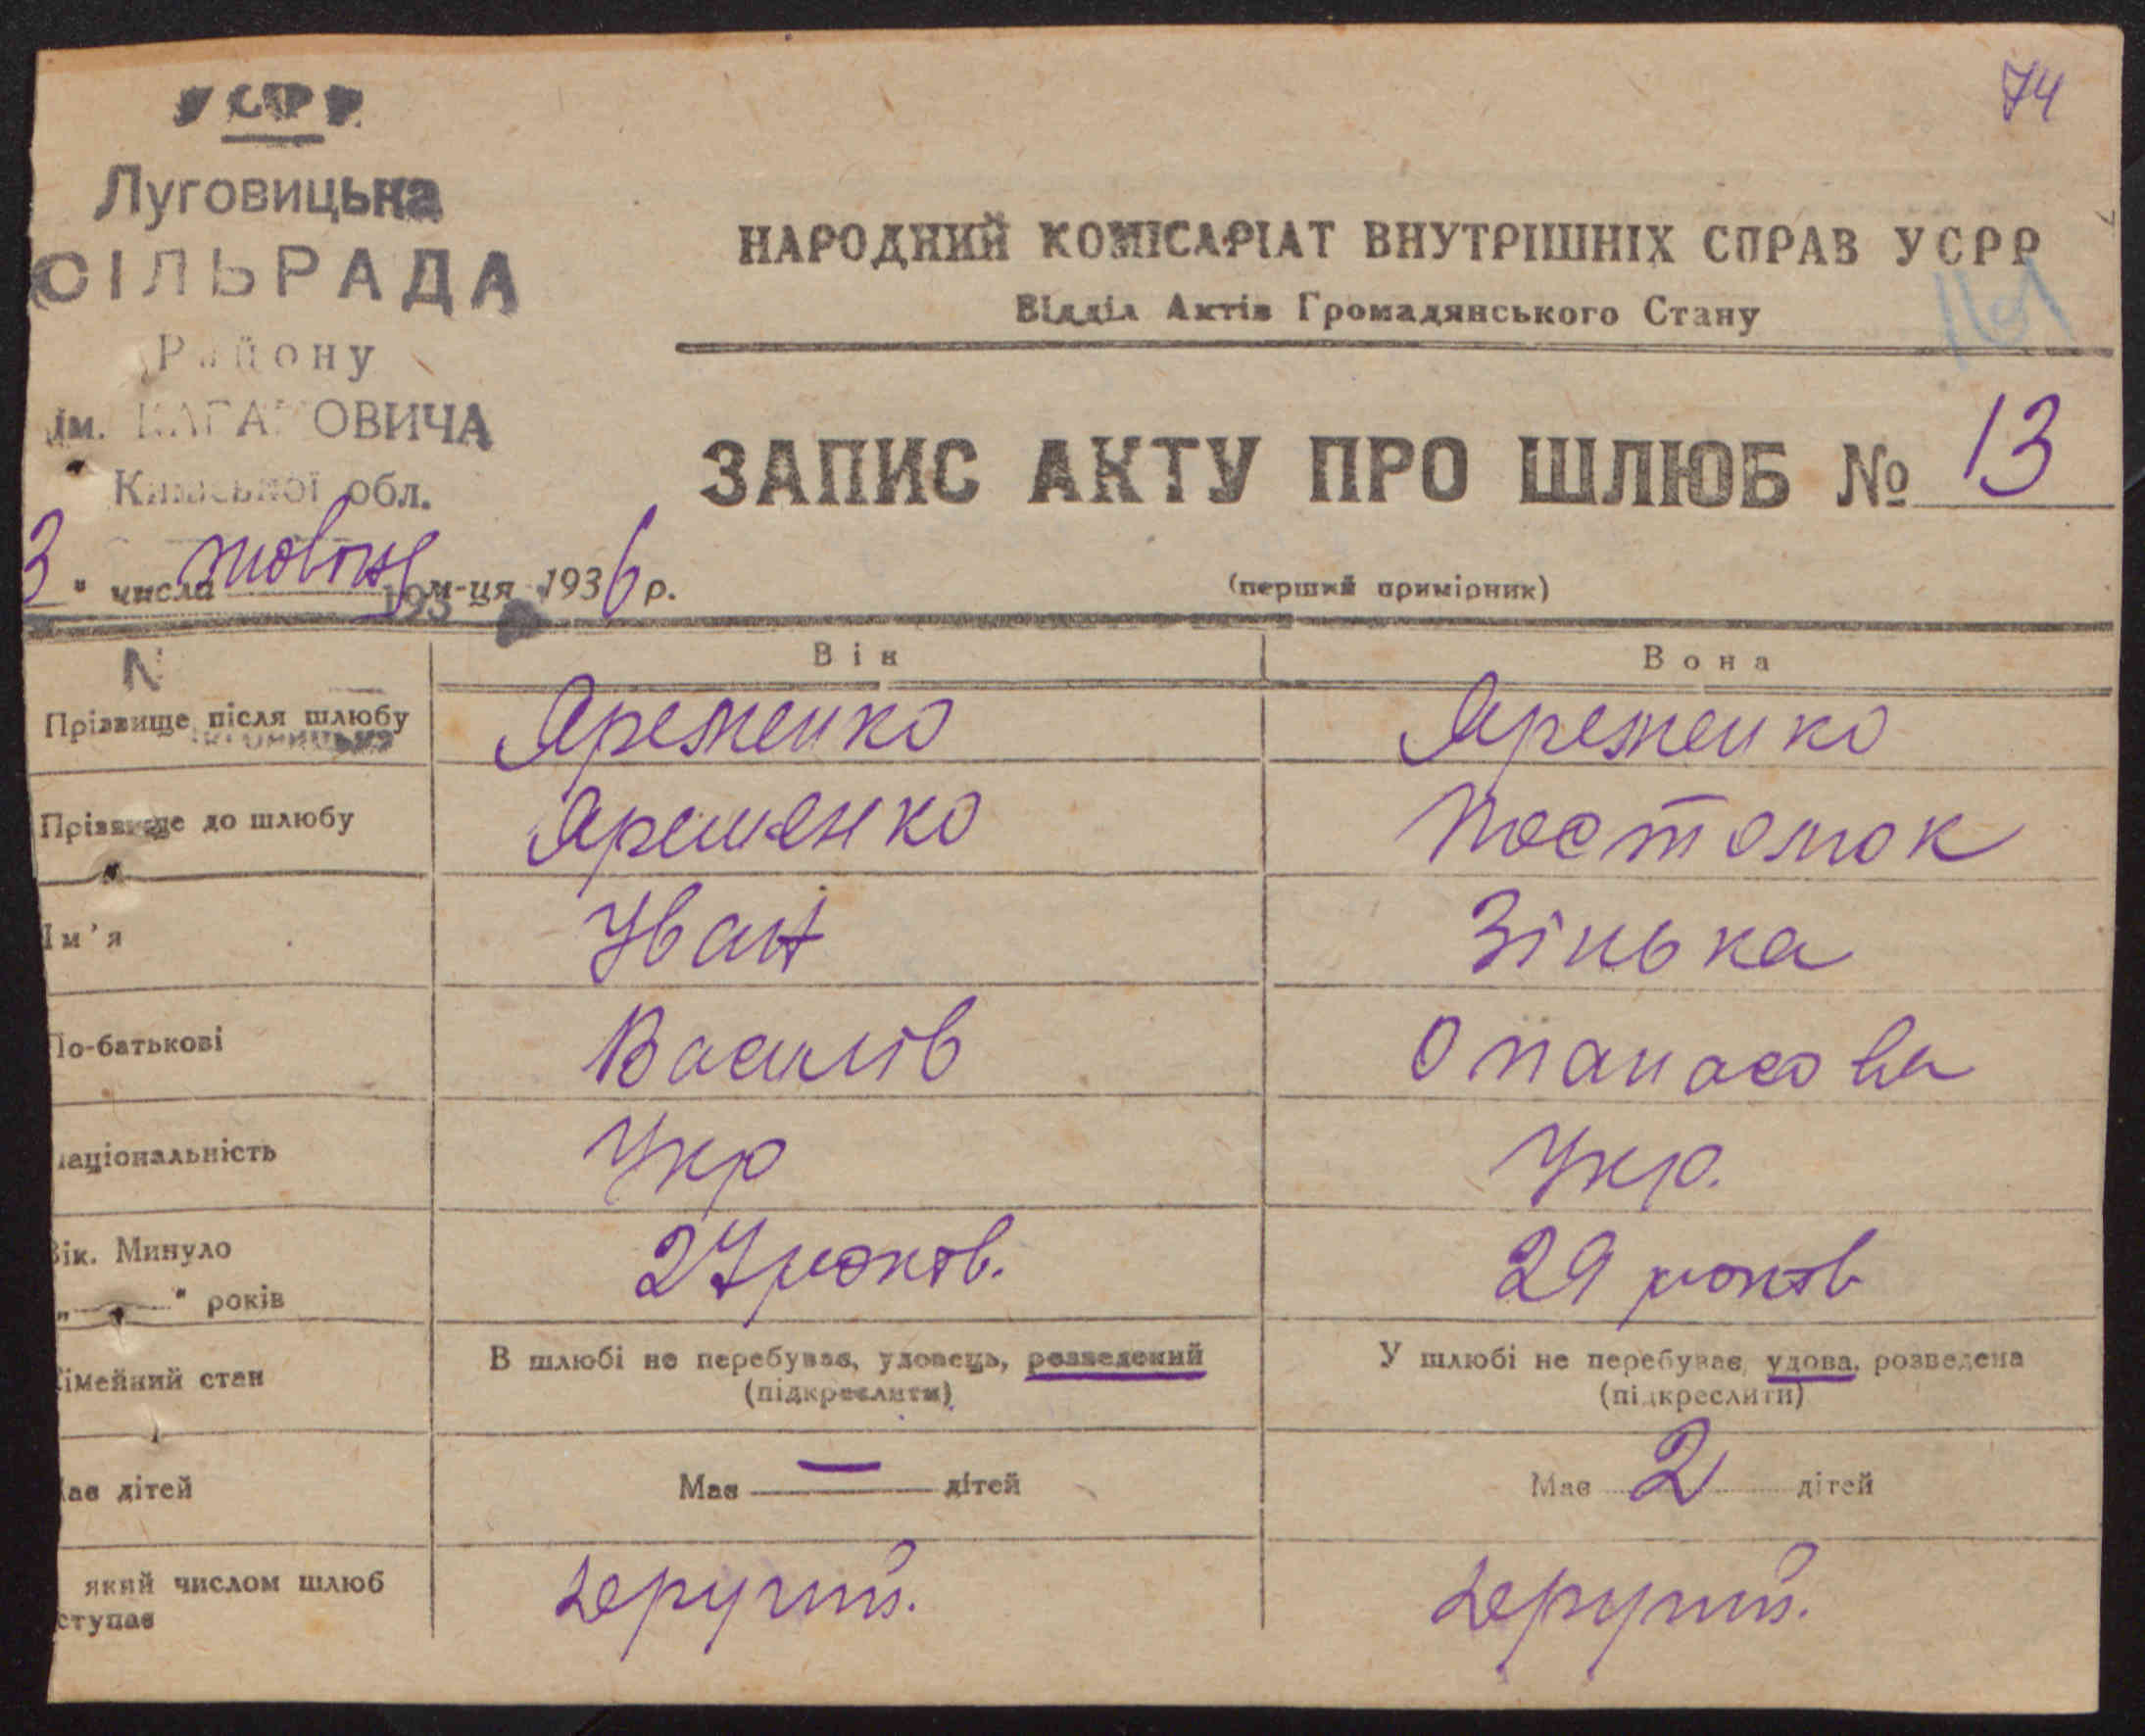 74
УСРР
Луговицька
СІЛЬРАДА
Району
ім. КАГАНОВИЧА
Київської обл.
НАРОДНИЙ КОМІСАРІАТ ВНУТРІШНІХ СПРАВ УСРР
Відділ Актів Громадянського Стану
161
ЗАПИС АКТУ ПРО ШЛЮБ № 13
3 " числа жовтня м-ця 1936 р.
193
(перший примірник)
N
Він Вона
Прізвище після шлюбу Яременко Яременко
Прізвище до шлюбу Яременко Постолюк
Ім'я Іван Зінька
По-батькові Василів Опанасова
Національність Укр Укр.
Вік. Минуло 27 років. 29 років
„ " років
Сімейний стан В шлюбі не перебуває, удовець, розведений У шлюбі не перебуває, удова, розведена
(підкреслити) (підкреслити)
Має дітей Має — дітей Має 2 дітей
який числом шлюб другий. другий.
ступає